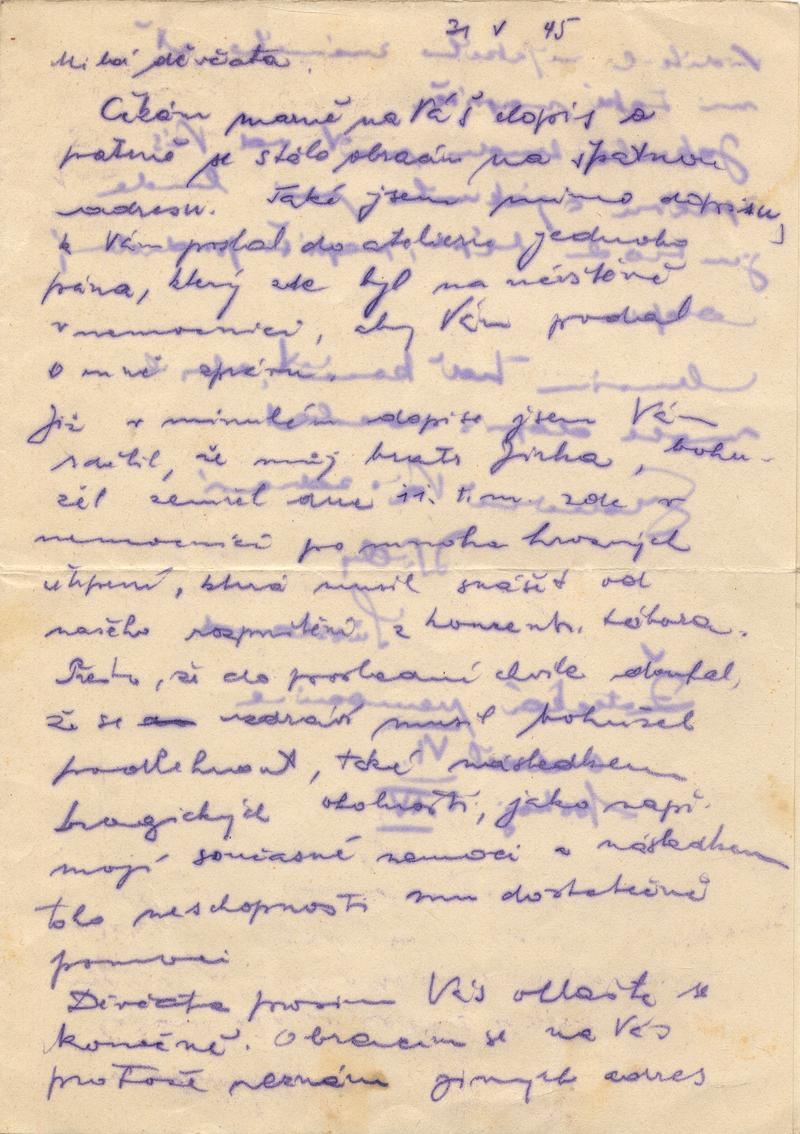 21 V 45
Milá děvčata.
Čekám marně na Váš dopis a
patrně se stále obracím na špatnou
adresu. Také jsem mimo dopisu,
k Vám poslal do atelieru jednoho
pána, který zde byl na návštěvě
v nemocnici, aby Vám podal
o mně zprávu.
Již v minulém dopise jsem Vám
sdělil, že můj bratr Jirka, bohu-
žel zemřel dne 11. t.m. zde v
nemocnici po mnoha hrozných
útrpení, která musil snášet od
našeho rozpuštění z koncentr. tábora.
Přesto, že do poslední chvíle doufal,
že se uzdraví musil bohužel
podlehnout, také následkem
tragických okolností, jako např.
mojí současné nemoci a následkem
toho neschopnosti mu dostatečně
pomoci
Děvčata prosím Vás ohlašte se
konečně. Obracím se na Vás
protože neznám jiných adres